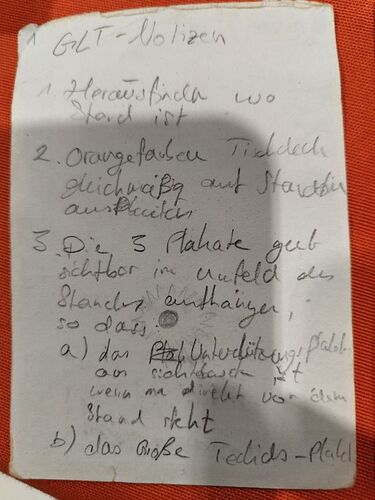 1 GLT-Notizen
1. Herausfinden wo
Stand ist
2. Orangefarben Tischdeck
gleichmäßig auf
ausbreiten
3. Die 3 Plakate gut
sichtbar im Umfeld des
Standes aufhängen,
so dass
a) das Unterstützungs
am ist
wenn man direkt vor dem
Stand steht
b) das Große Teckids-Plakat